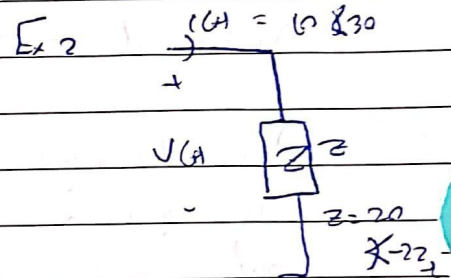 Ex 2
i(t) = 10 ∠30
+
V(t)
Z Z
-
Z=20
∠-22